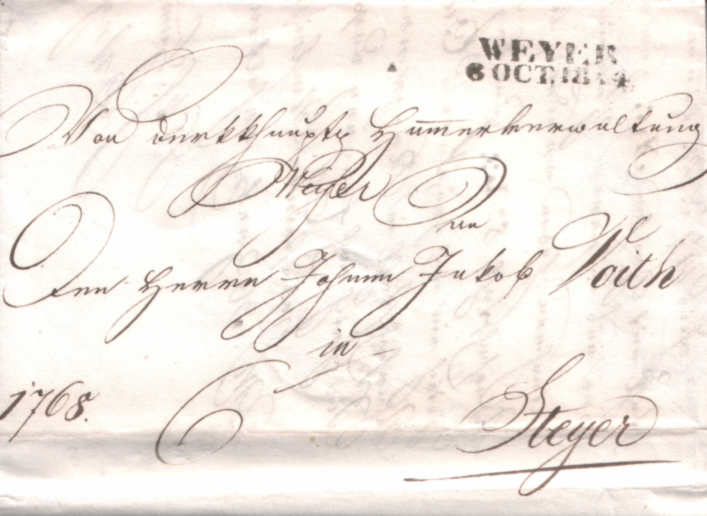 WEYER
6 OCT. 18
Von der kk Haupt Hammerverwaltung
Weyer
An
Den Herrn Johann Jakob Voith
in
Steyer
1768.